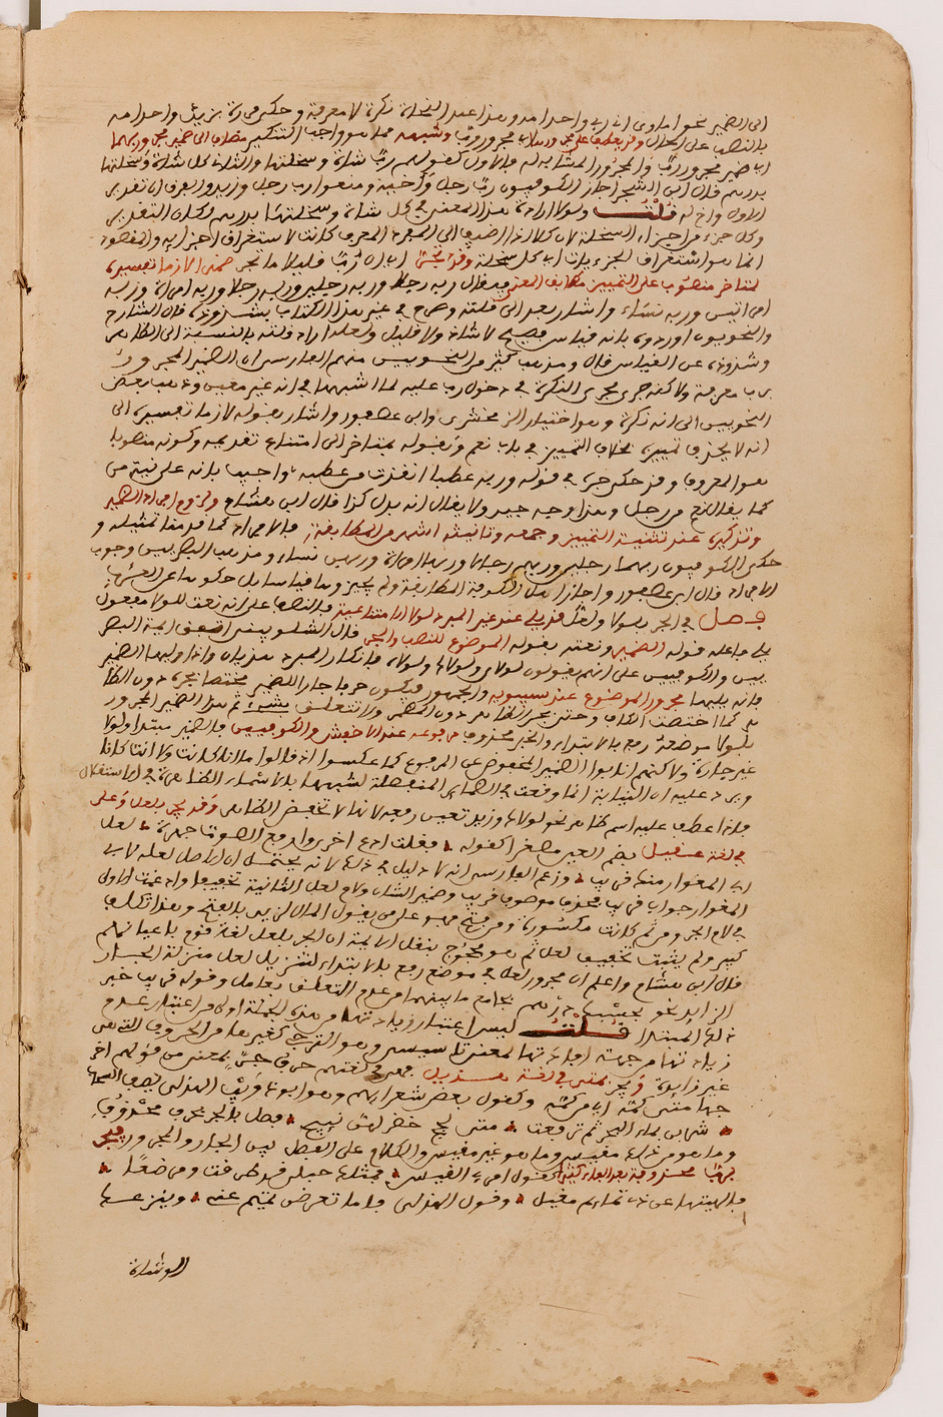 الى الضمير نحو اماوى انى رب واحد امه وهذا عند النحاة نكرة لا معرفة وحكى
بالنصب على الحال وقد يعطف على مجرور رب وشبهه مما هو واجب التنكير مضاف الى ضمير مجرورهما
اى ضمير مجرور رب والمجرور المشابه له فالاول كقولهم رب شاة وسخلتها والثانى كل شاة وسخلتها
بدرهم قال ابن الشجرى اجاز الكوفيون رب رجل واخيه ومنعوا رب رجل وزيد والفرق ان تقدير
الاول واخ له قلت ولولا ارادة هذا المعنى فى كل شاة وسخلتها بدرهم لكان التقدير
وكل جزء من اجزاء السخلة لان كلا اذا اضيف الى المفرد المعرف كانت لاستغراق اجزائه والمقصود
انما هو استغراق الجزئيات اى كل سخلة وقد تجر اى رب قليلا ما تجر ضميرا لازما تفسيره
بمتاخر منصوب على التمييز مطابق للمعنى فيقال ربه رجلا وربه رجلين وربه رجالا وربه امراة وربه
امراتين وربه نساء واشار بعد الى قلته وصرح فى غير هذا الكتاب بشذوذه قال الشارح
والنحويون اوردوه بانه قياس فصيح لا شاذ ولا قليل ولعله اراد قلته بالنسبة الى الظاهر
وشذوذه عن القياس قال ومذهب كثير من النحويين منهم الفارسى ان الضمير المجرور
برب معرفة ولاكنه جرى مجرى النكرة فى دخول رب عليه لما اشبهها فى انه غير معين وذهب بعض
النحويين الى انه نكرة وهو اختيار الزمخشرى وابن عصفور واشار بقوله لازما تفسيره الى
انه لا يحذف تمييزه بخلاف التمييز فى باب نعم وبقوله بمتاخر الى امتناع تقديمه وكونه منصوبا
هو المعروف وقد حكى جره فى قوله وربه عطبا انقذت من عطبه واجيب بانه على نية من
كما يقال نعم من رجل وهذا وجه جيد ولا يقال انه بدل كذا قال ابن هشام ولزوم افراد الضمير
وتذكيره عند تثنية التمييز وجمعه وتانيثه اشهر من المطابقة فالافراد كما قدمنا تمثيله و
حكى الكوفيون ربهما رجلين وربهم رجالا وربها امراة وربهن نساء ومذهب البصريين وجوب
الافراد قال ابن عصفور واجاز اهل الكوفة المطابقة ولم يجيزوها قياسا بل حكوها عن العرب
فصل فى الجر بلولا ولعل فديلى عند غير المبرد لولا الامتناعية بالنصب على انه نعت للولا مفعول
يلى فاعله قوله الضمير ونعته بقوله الموضوع للنصب والجر قال الشلوبين اتفق ائمة البصر
يين والكوفيين على انهم يقولون لولاى ولولاك ولولاه فانكار المبرد هذيان واذا وليها الضمير
فانه يليها مجرور الموضوع عند سيبويه والجمهور فيكون حرفا جارا للضمير مختصا بجره دون الظا
هر كما اختصت الكاف وحتى بجر الظاهر دون المضمر ولا تتعلق بشىء ثم هذا الضمير المجرور
بلولا موضعه رفع بالابتداء والخبر محذوف مرفوعه عند الاخفش والكوفيين فالضمير مبتدا ولولا
غير جارة ولاكنهم انابوا الضمير المخفوض عن المرفوع كما عكسوا اذ قالوا ما انا كانت ولا انت كانا
ويرد عليه ان النيابة انما وقعت فى الضمائر المنفصلة لشبهها بالاسماء الظاهرة فى الاستقلال
فاذا عطف عليه اسم ظاهر نحو لولاك وزيد تعين رفعه لانها لا تخفض الظاهر وقد يجر بلعل وعلى
فى لغة عقيل بضم العين مصغرا كقوله فقلت ادع اخرى وارفع الصوت جهرة لعل
ابى المغوار منك قريب وزعم الفارسى انه لا دليل فى ذلك لانه يحتمل ان الاصل لعله لابى
المغوار جواب قريب فحذف موصوف قريب وضمير الشان ولام لعل الثانية تخفيفا وادغمت الاولى
فى لام الجر ومن ثم كانت مكسورة ومن فتح فهو على من يقول المال لزيد بالفتح وهذا تكلف
كبير ولم يثبت تخفيف لعل ثم هو محجوج بنقل الائمة ان الجر بلعل لغة قوم باعيانهم
قال ابن هشام واعلم ان مجرور لعل فى موضع رفع بالابتداء لتنزيل لعل منزلة الجار
الزائد نحو بحسبك درهم بجامع ما بينهما من عدم التعلق بعامل وقوله قريب خبر
ذلك المبتدا قلت ليس اعتبار زيادتها من هذه الجملة اولى من اعتبار عدم
زيادتها من جهة افادتها لمعنى تاسيسى وهو الترجى كغيرها من الحروف التى هى
غير زائدة ويجر بمتى فى لغة هذيل فهى فى لغتهم حرف جر بمعنى من قولهم اخر
جها متى كمه اى من كمه وكقول بعض شعرائهم وهو ابو ذؤيب الهذلى يصف السحاب
شربن بماء البحر ثم ترفعت متى لجج خضر لهن نئيج فصل فى الجر بحرف محذوف
وما هو من ذلك مقيس وما هو غير مقيس والكلام على الفصل بين الجار والمجرور فيجر
برب محذوفة بعد الفاء كثيرا كقول امرئ القيس فمثلك حبلى قد طرقت ومرضعا
فالهيتها عن ذى تمائم مغيل وقول الهذلى فاما تعرضن اميم عنى وينزعك
الوشاة